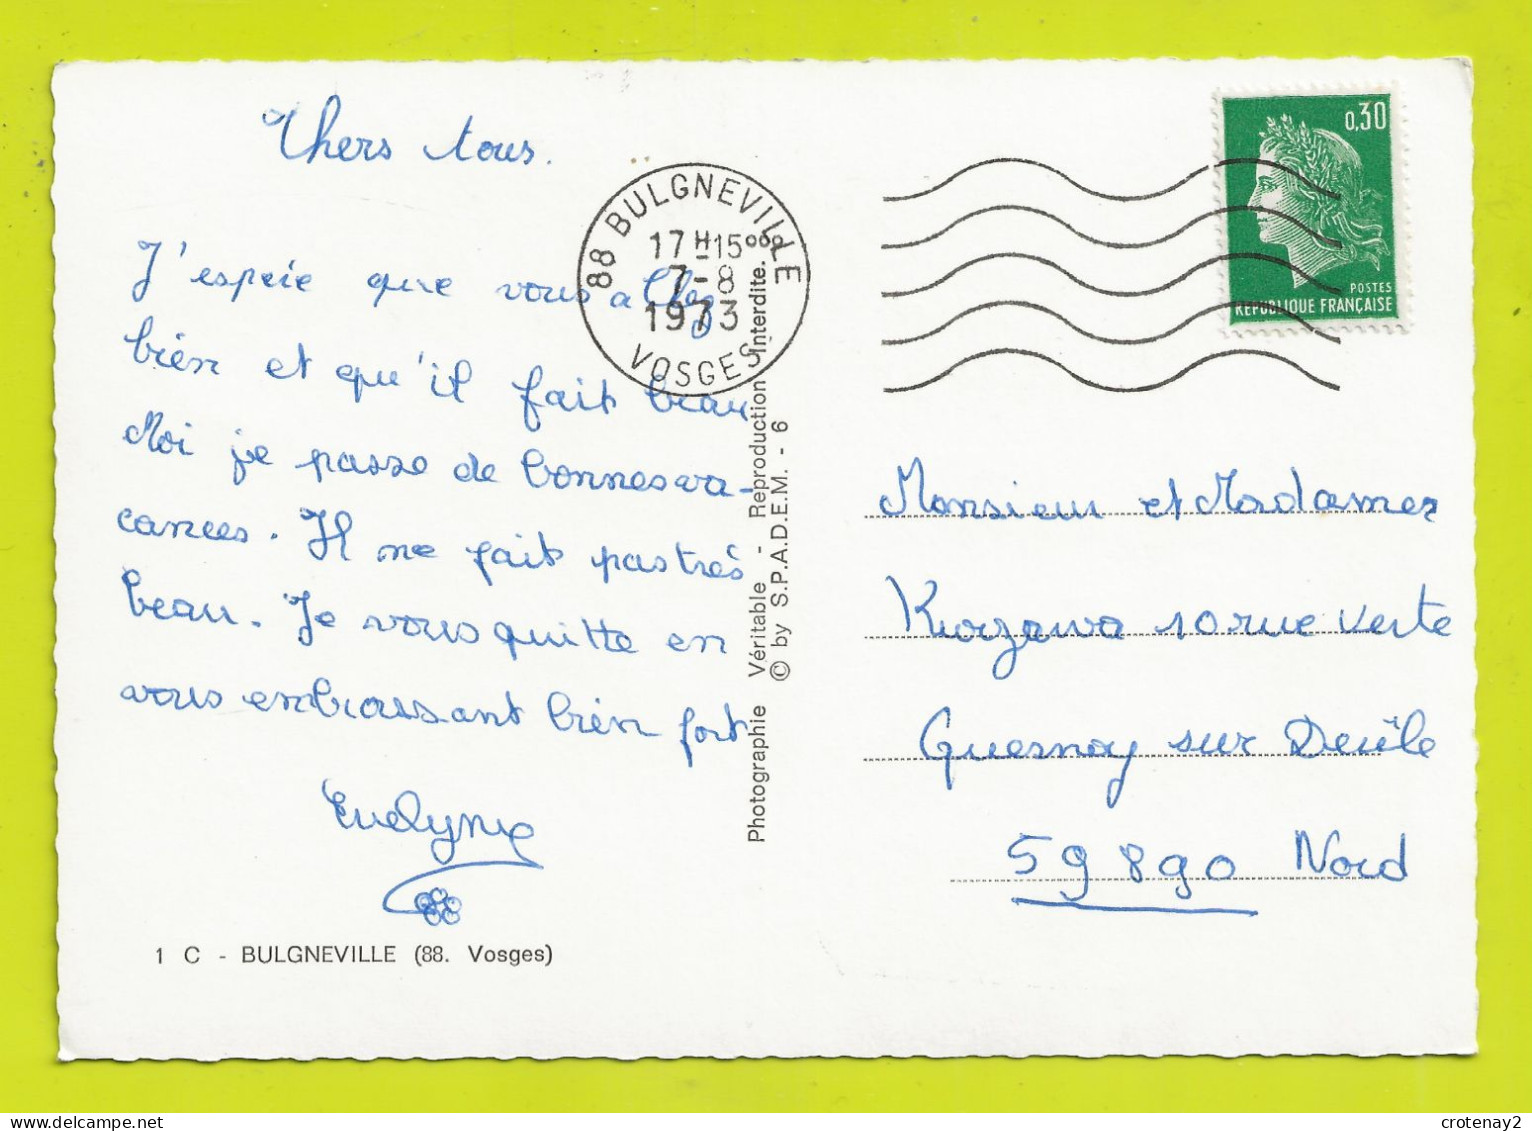 Chers tous.
J'espère que vous allez
bien et qu'il fait beau
Moi je passe de bonnes va-
cances. Il ne fait pas très
beau. Je vous quitte en
vous embrassant bien fort
Evelyne
1 C - BULGNEVILLE (88. Vosges)
88 BULGNEVILLE
17 H 15
7-8
1973
VOSGES
Photographie Véritable - Reproduction Interdite.
© by S.P.A.D.E.M. - 6
0,30
POSTES
REPUBLIQUE FRANÇAISE
Monsieur et Madame
10 rue Verte
Quesnoy sur Deûle
59890 Nord
crotenay2